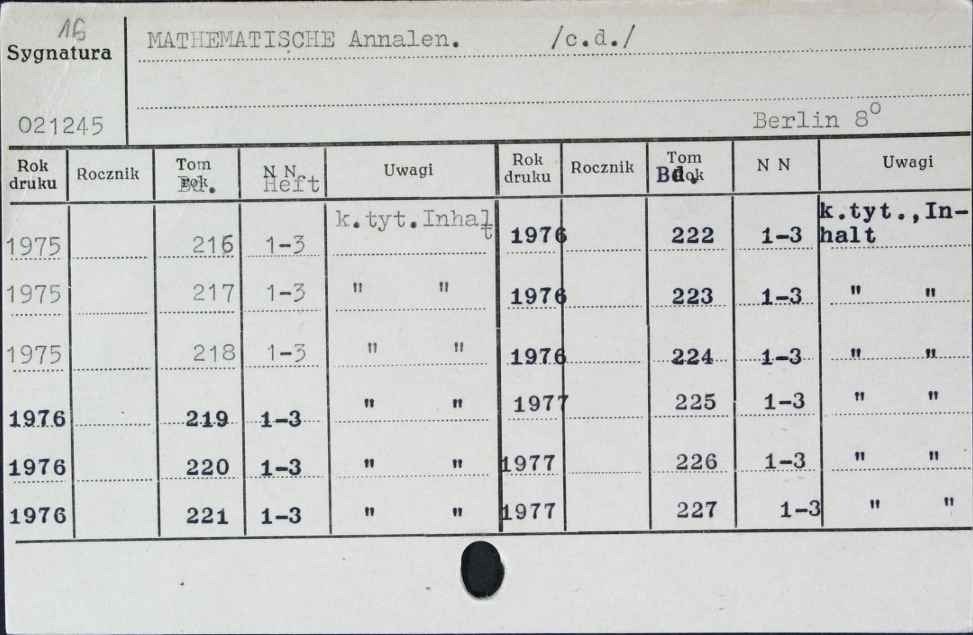 16
Sygnatura
MATHEMATISCHE Annalen. /c.d./
021245
Berlin 8⁰
Rok druku Rocznik Tom Bd. N N Heft Uwagi Rok druku Rocznik Tom Bd. rok N N Uwagi
1975 216 1-3 k.tyt.Inhalt 1976 222 1-3 k.tyt.,In-
halt
1975 217 1-3 " " 1976 223 1-3 " "
1975 218 1-3 " " 1976 224 1-3 " "
1976 219 1-3 " " 1977 225 1-3 " "
1976 220 1-3 " " 1977 226 1-3 " "
1976 221 1-3 " " 1977 227 1-3 " "